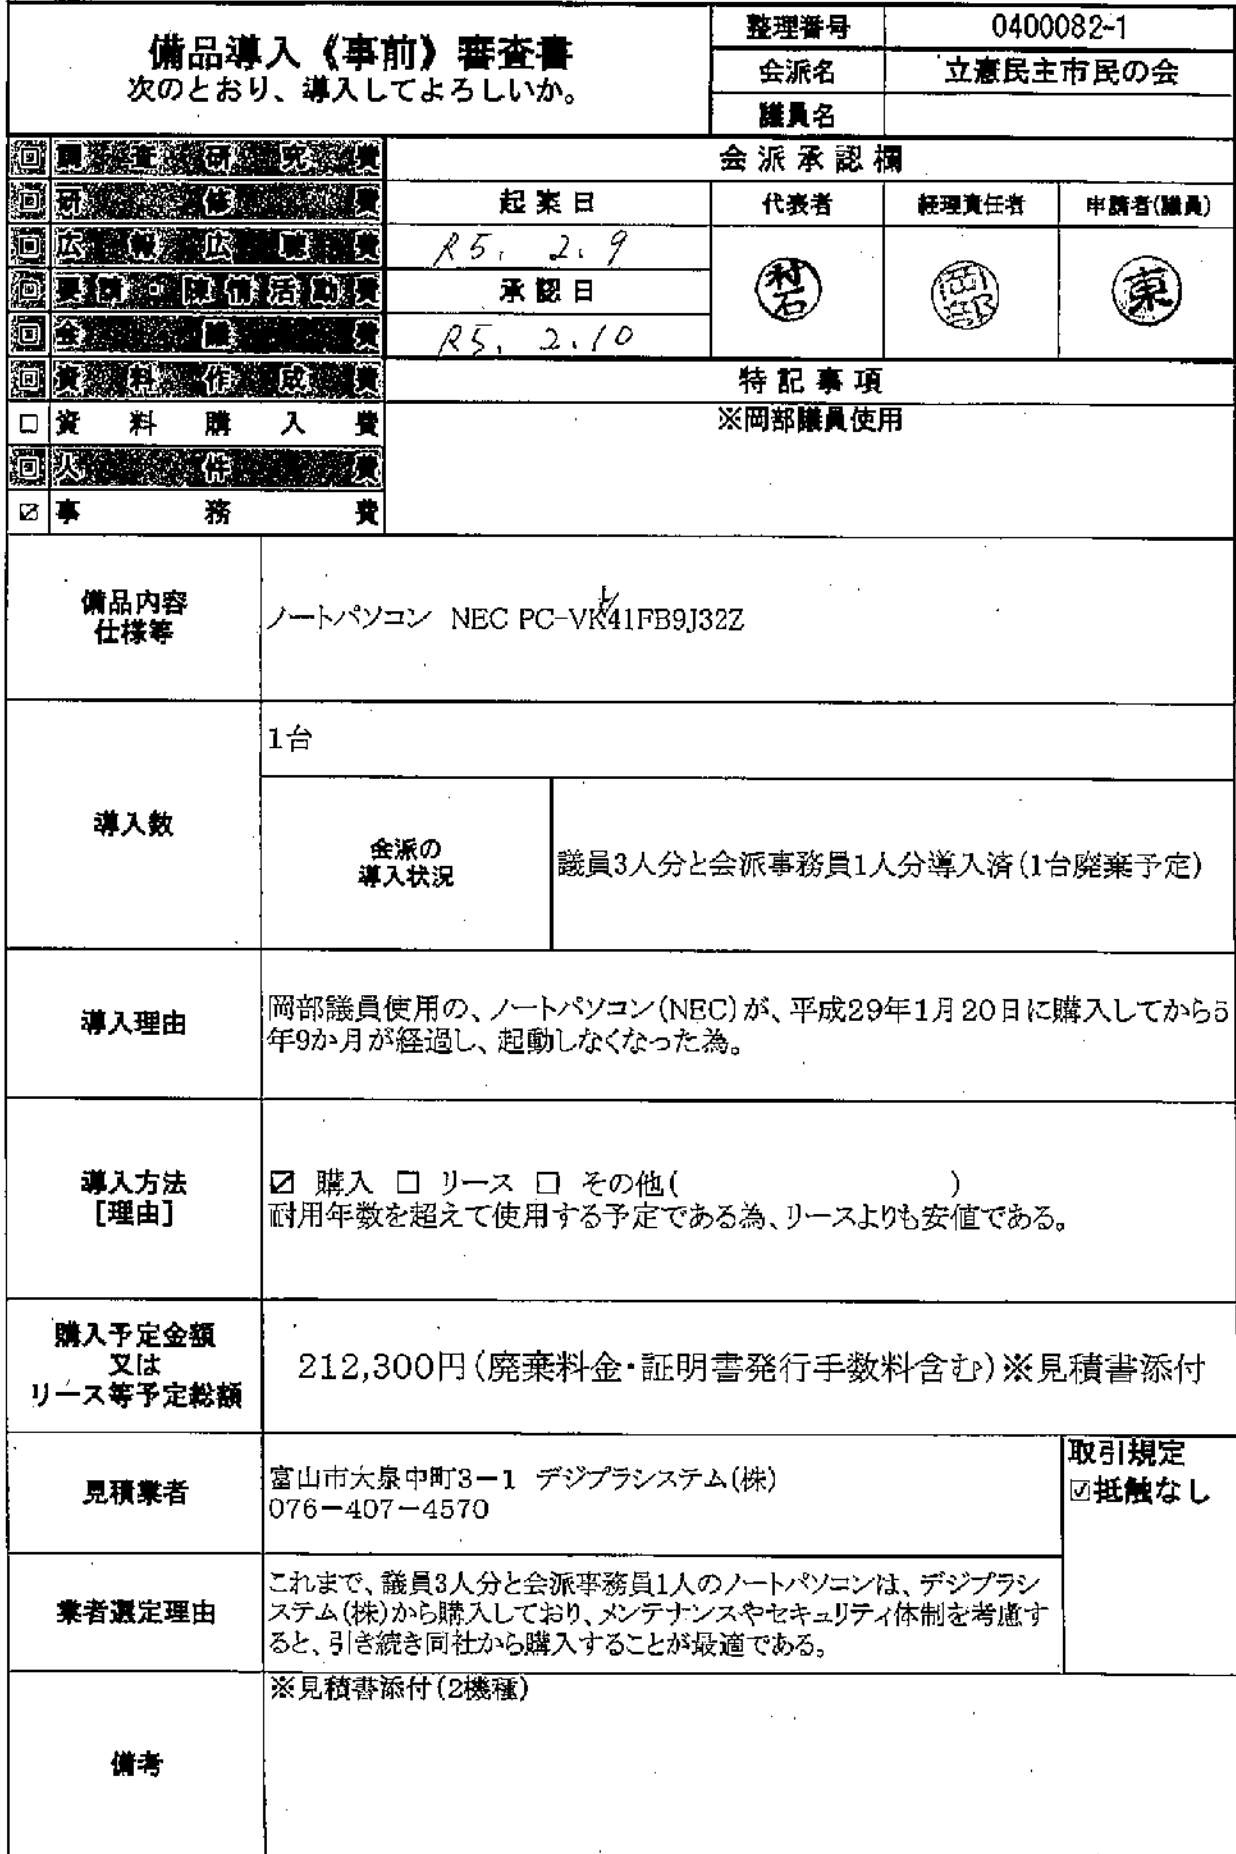 備品導入《事前》審査書
次のとおり、導入してよろしいか。
整理番号 0400082-1
会派名 立憲民主市民の会
議員名
調査研究費
研修費
広報広聴費
要請・陳情活動費
会議費
資料作成費
□ 資料購入費
人件費
☑ 事務費
会派承認欄
起案日 代表者 経理責任者 申請者(議員)
R5. 2. 9
承認日
R5. 2. 10
村石 岡部 東
特記事項
※岡部議員使用
備品内容
仕様等
ノートパソコン NEC PC-VK41FB9J32Z
導入数
1台
会派の
導入状況
議員3人分と会派事務員1人分導入済(1台廃棄予定)
導入理由
岡部議員使用の、ノートパソコン(NEC)が、平成29年1月20日に購入してから5
年9か月が経過し、起動しなくなった為。
導入方法
[理由]
☑ 購入 □ リース □ その他( )
耐用年数を超えて使用する予定である為、リースよりも安値である。
購入予定金額
又は
リース等予定総額
212,300円(廃棄料金・証明書発行手数料含む)※見積書添付
見積業者
富山市大泉中町3-1 デジプラシステム(株)
076-407-4570
取引規定
☑抵触なし
業者選定理由
これまで、議員3人分と会派事務員1人のノートパソコンは、デジプラシ
ステム(株)から購入しており、メンテナンスやセキュリティ体制を考慮す
ると、引き続き同社から購入することが最適である。
備考
※見積書添付(2機種)